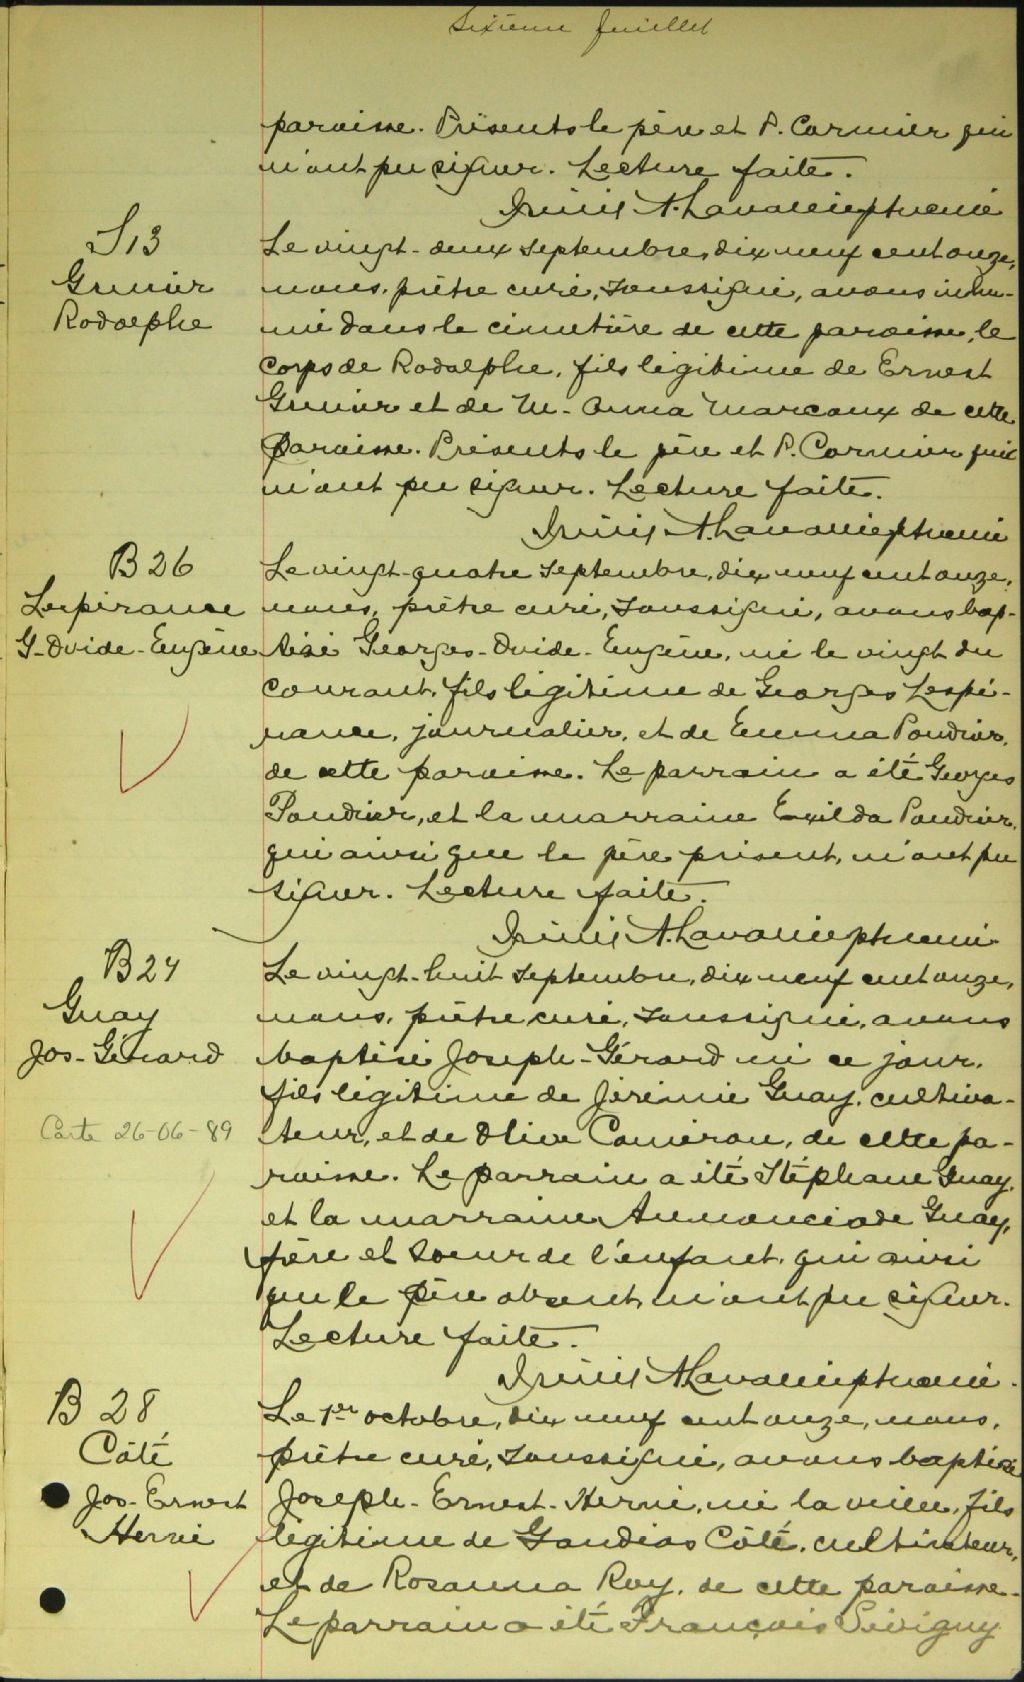 Sixième feuillet
paroisse. Présents le père et P. Cormier qui
n'ont pu signer. Lecture faite.
Irénée A. Lavallée ptre curé
S 13
Grenier
Rodolphe
Le vingt-deux septembre, dix neuf cent onze,
nous, prêtre curé, soussigné, avons inhu-
mé dans le cimetière de cette paroisse, le
corps de Rodolphe, fils légitime de Ernest
Grenier et de M-Anna Marcoux de cette
paroisse. Présents le père et P. Cormier qui
n'ont pu signer. Lecture faite.
Irénée A. Lavallée ptre curé
B 26
Lespérance
G-Ovide-Eugène
Le vingt-quatre septembre, dix neuf cent onze,
nous, prêtre curé, soussigné, avons bap-
tisé Georges-Ovide-Eugène, né le vingt du
courant, fils légitime de Georges Lespé-
rance, journalier, et de Emma Poudrier,
de cette paroisse. Le parrain a été Georges
Poudrier, et la marraine Exilda Poudrier,
qui ainsi que le père présent, n'ont pu
signer. Lecture faite.
Irénée A. Lavallée ptre curé
B 27
Guay
Jos-Gérard
Carte 26-06-89
Le vingt-huit septembre, dix neuf cent onze,
nous, prêtre curé, soussigné, avons
baptisé Joseph-Gérard né ce jour,
fils légitime de Jérémie Guay, cultiva-
teur, et de Olive Camiron, de cette pa-
roisse. Le parrain a été Stéphane Guay,
et la marraine Guay,
frère et soeur de l'enfant, qui ainsi
que le père absent, n'ont pu signer.
Lecture faite.
Irénée A. Lavallée ptre curé
B 28
Côté
Jos-Ernest
Hervé
Le 1er octobre, dix neuf cent onze, nous,
prêtre curé, soussigné, avons baptisé
Joseph-Ernest-Hervé, né la veille, fils
légitime de Gaudias Côté, cultivateur,
et de Rosanna Roy, de cette paroisse.
Le parrain a été François Sévigny